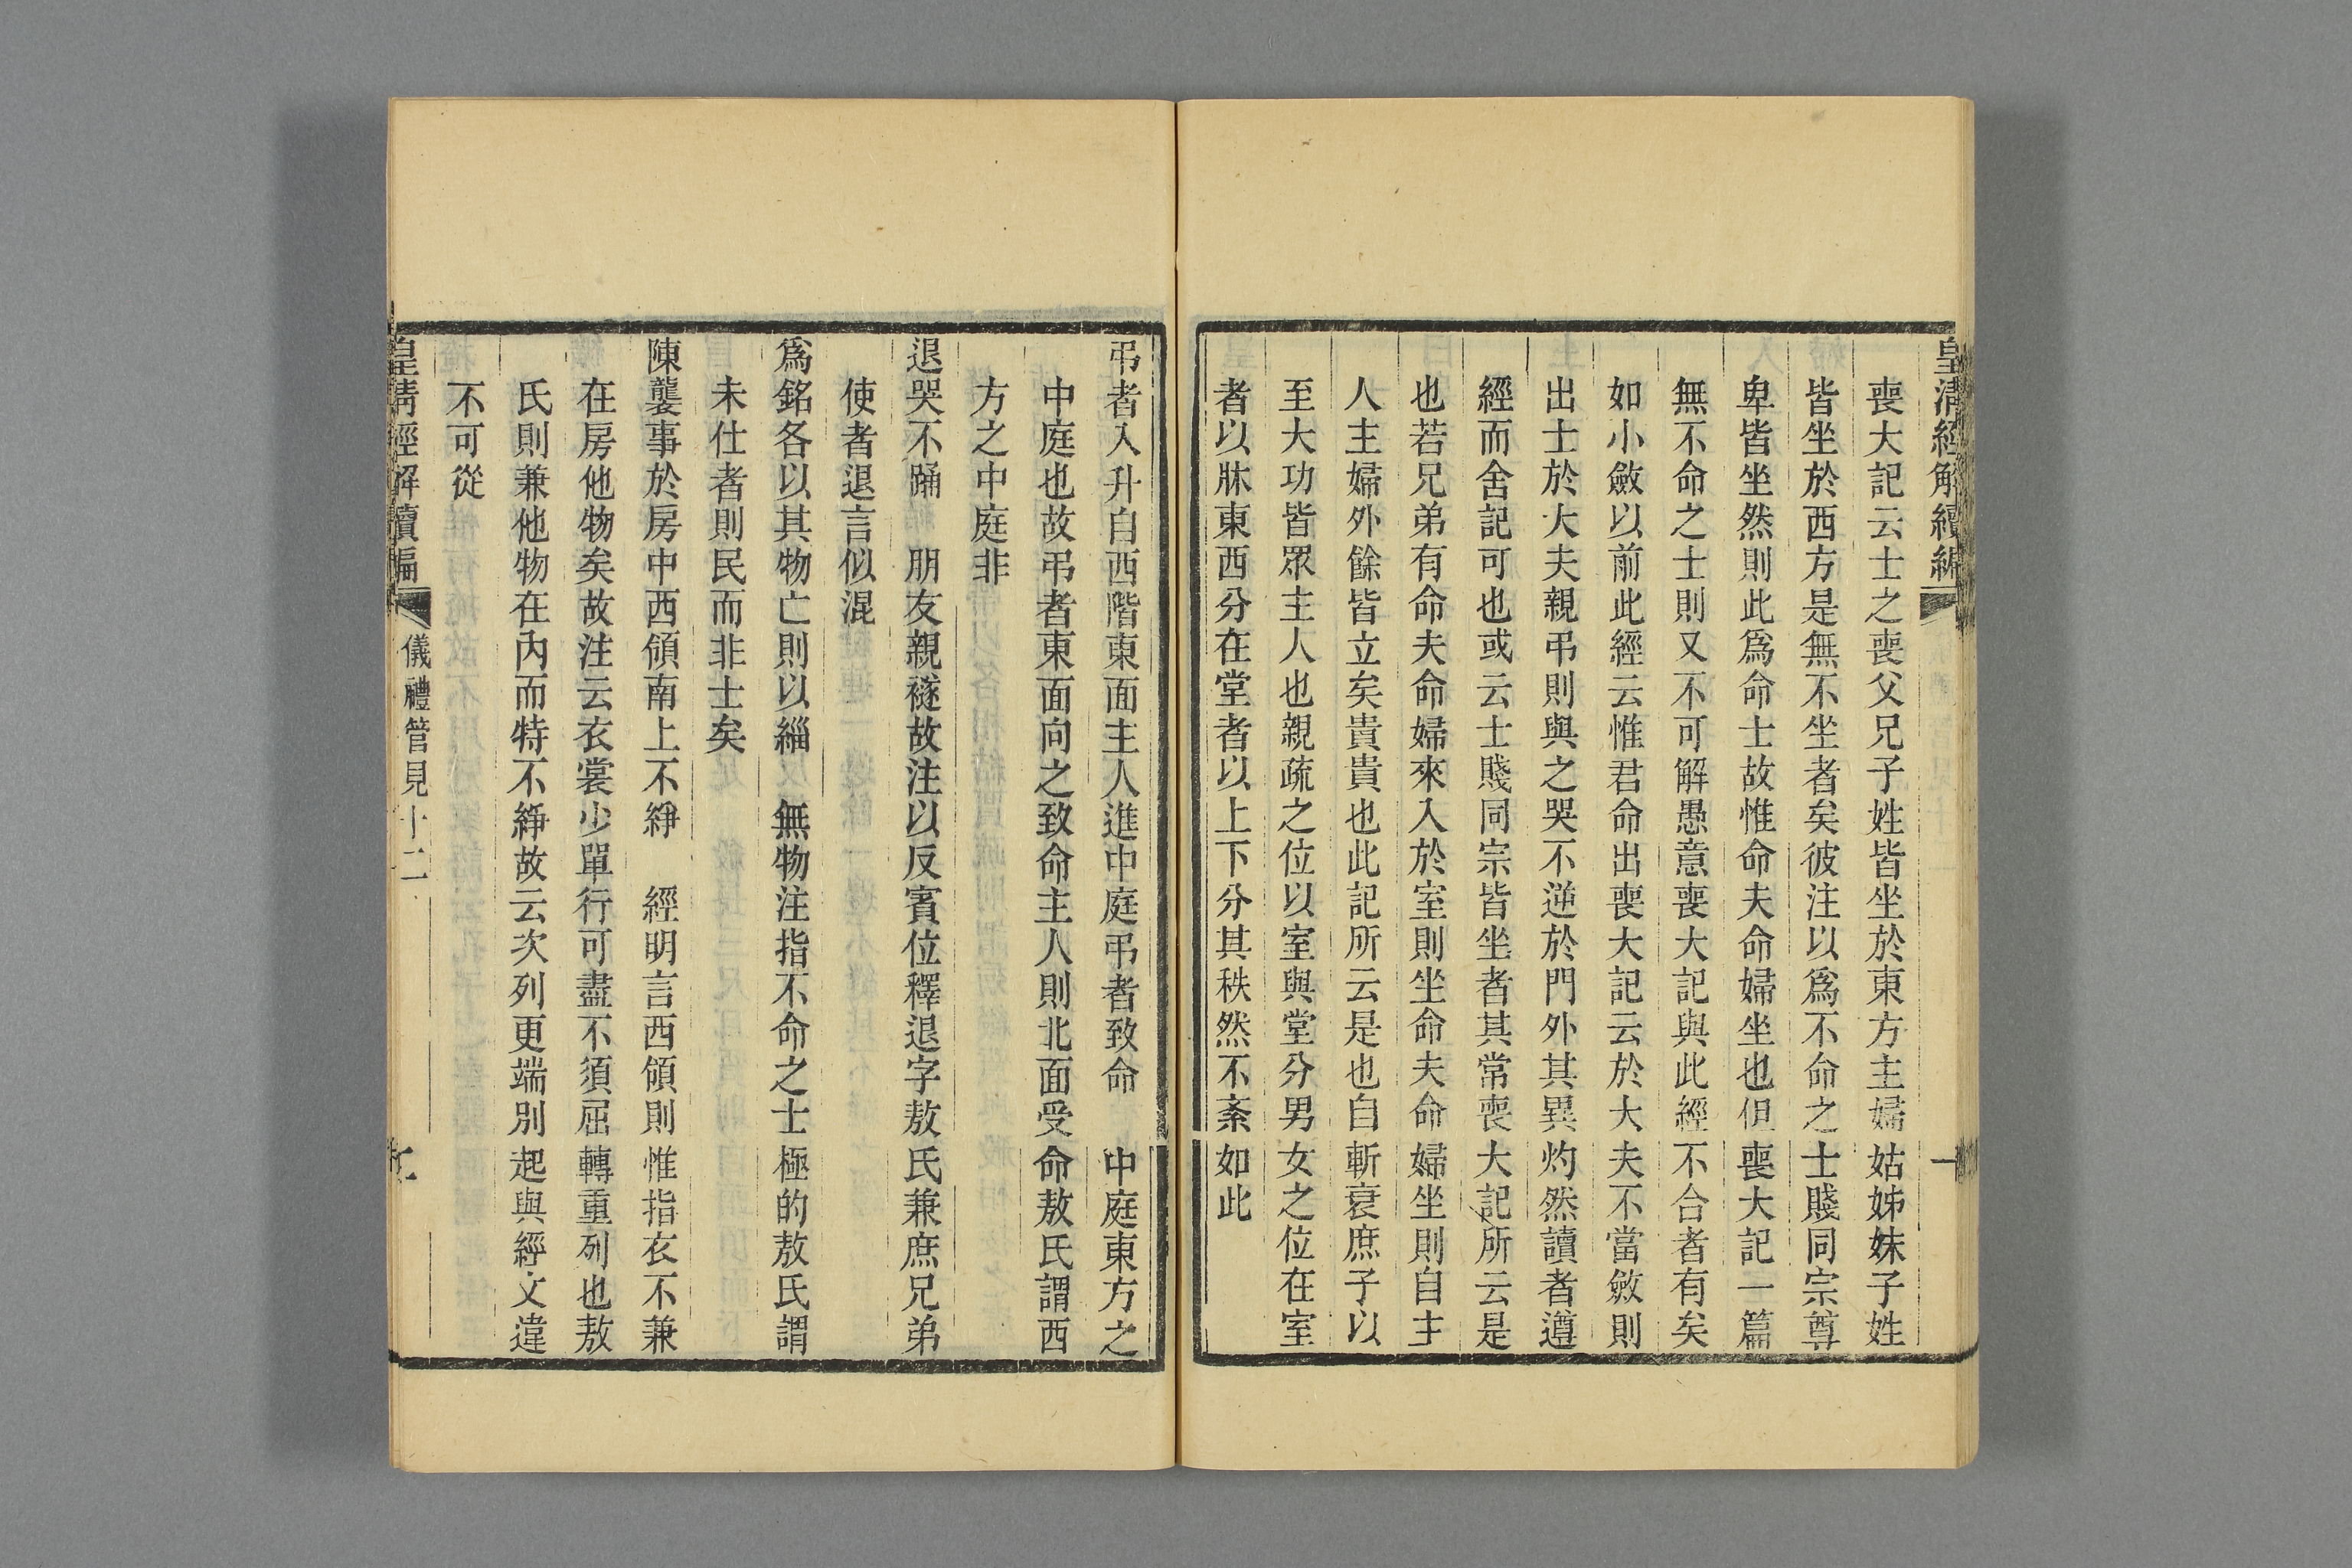 皇清經解續編
喪大記云士之喪父兄子姓皆坐於東方主婦姑姊妹子姓
皆坐於西方是無不坐者矣彼注以爲不命之士賤同宗尊
卑皆坐然則此爲命士故惟命夫命婦坐也但喪大記一篇
無不命之士則又不可解愚意喪大記與此經不合者有矣
如小斂以前此經云惟君命出喪大記云於大夫不當斂則
出士於大夫親弔則與之哭不逆於門外其異灼然讀者遵
經而舍記可也或云士賤同宗皆坐者其常喪大記所云是
也若兄弟有命夫命婦來入於室則坐命夫命婦坐則自主
人主婦外餘皆立矣貴貴也此記所云是也自斬衰庶子以
至大功皆眾主人也親疏之位以室與堂分男女之位在室
者以牀東西分在堂者以上下分其秩然不紊如此
弔者入升自西階東面主人進中庭弔者致命　中庭東方之
中庭也故弔者東面向之致命主人則北面受命敖氏謂西
方之中庭非
退哭不踊　朋友親襚故注以反賓位釋退字敖氏兼庶兄弟
使者退言似混
爲銘各以其物亡則以緇　無物注指不命之士極的敖氏謂
未仕者則民而非士矣
陳襲事於房中西領南上不綪　經明言西領則惟指衣不兼
在房他物矣故注云衣裳少單行可盡不須屈轉重列也敖
氏則兼他物在內而特不綪故云次列更端別起與經文違
不可從
皇清經解續編　儀禮管見十二